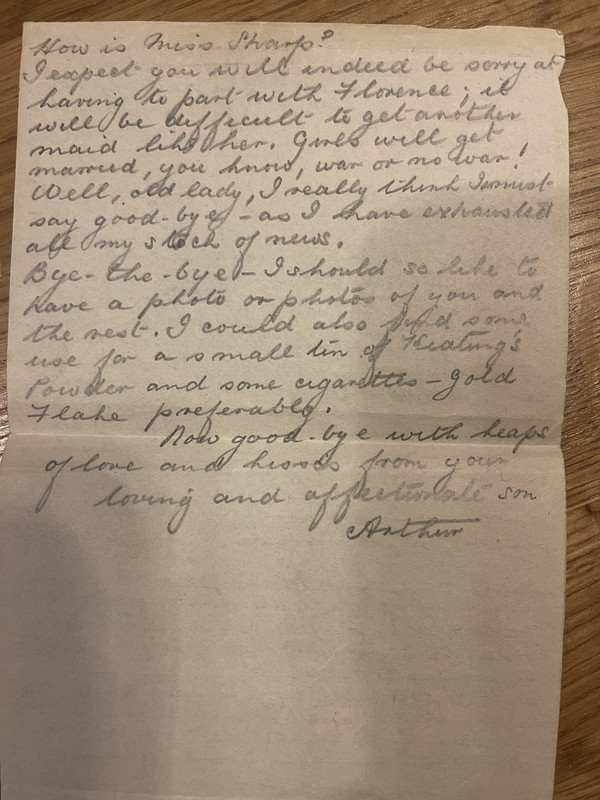 How is Miss Sharp?
I expect you will indeed be sorry at
having to part with Florence; it
will be difficult to get another
maid like her. Girls will get
married, you know, war or no war!
Well, old lady, I really think I must
say good-bye - as I have exhausted
all my stock of news.
Bye-the-bye - I should so like to
have a photo or photos of you and
the rest. I could also find some
use for a small tin of Keating's
Powder and some cigarettes - Gold
Flake preferably.
Now good-bye with heaps
of love and kisses from your
loving and affectionate son
Arthur